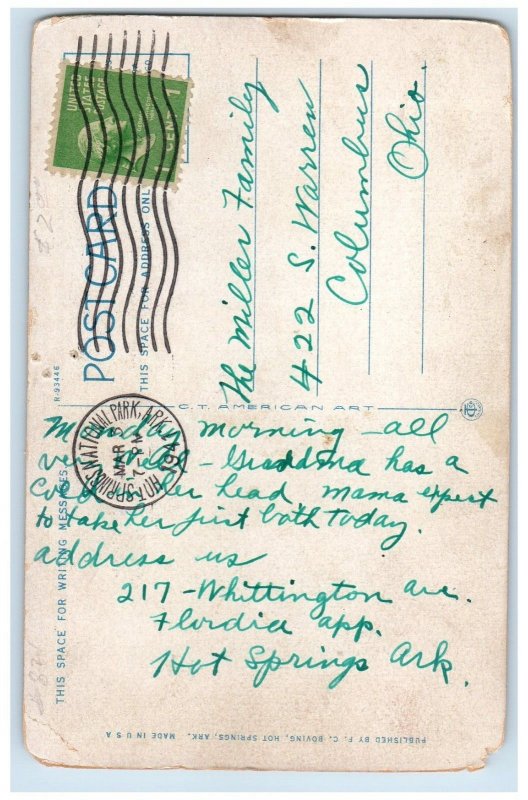 UNITED
STATES
POSTAGE
1 CENT 1
POSTCARD
THIS SPACE FOR ADDRESS ONLY
The Miller Family
422 S. Warren
Columbus
Ohio.
R-93446
C.T. AMERICAN ART
HOT SPRINGS NATIONAL PARK, ARK.
MAR
PM
Monday morning - all
very well - Grandma has a
Cold in her head, mama expert
to take her first bath today.
address us
217 - Whittington ave.
Flordia app.
Hot Springs Ark.
THIS SPACE FOR WRITING MESSAGES
PUBLISHED BY F. C. BOVING, HOT SPRINGS, ARK. MADE IN U S A